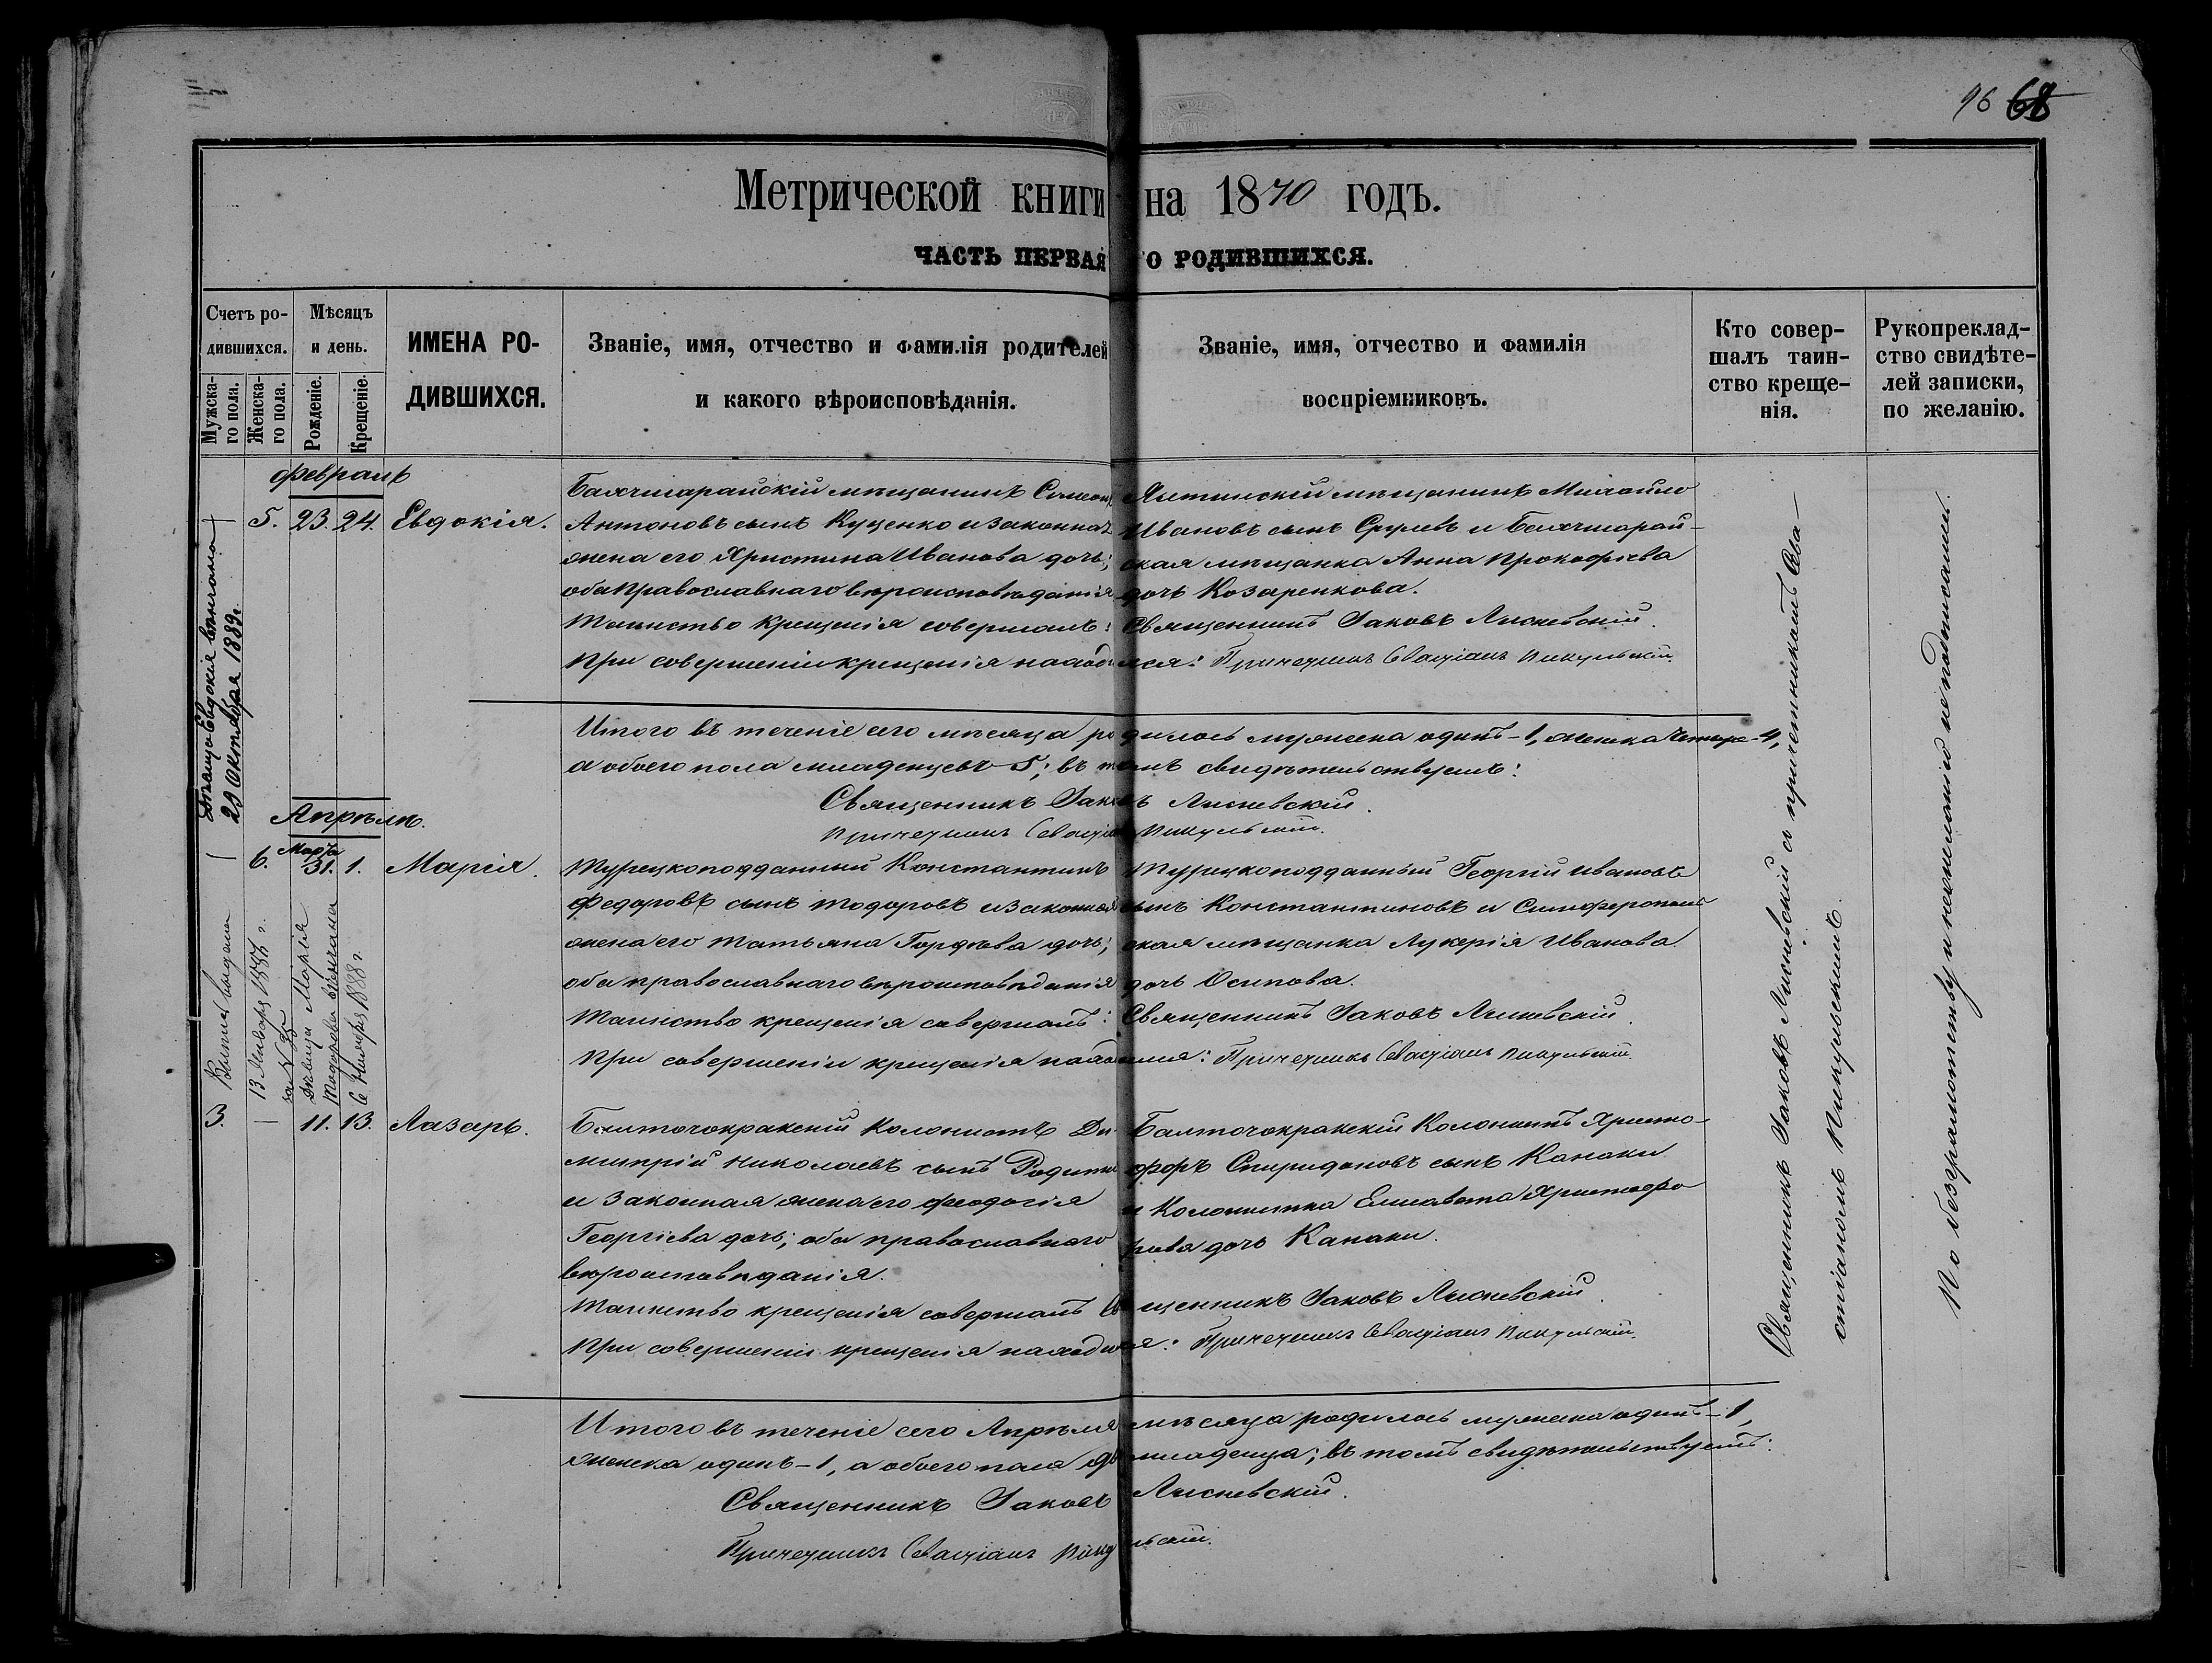 96 68
Метрической книги на 1870 годъ.
ЧАСТЬ ПЕРВАЯ О РОДИВШИХСЯ.
Счетъ ро-
дившихся.
Мужска-
го пола.
Женска-
го пола.
Мѣсяцъ
и день.
Рожденіе.
Крещеніе.
ИМЕНА РО-
ДИВШИХСЯ.
Званіе, имя, отчество и фамилія родителей
и какого вѣроисповѣданія.
Званіе, имя, отчество и фамилія
воспріемниковъ.
Кто совер-
шалъ таин-
ство креще-
нія.
Рукоприклад-
ство свидѣте-
лей записки,
по желанію.
Февраль
5. 23. 24. Евдокія.
Бахчисарайскій мѣщанинъ Симеонъ
Антоновъ сынъ Куценко и законная
жена его Христина Иванова дочь;
оба православнаго вѣроисповѣданія
Ялтинскій мѣщанинъ Михайло
Ивановъ сынъ и Бахчисарай-
ская мѣщанка Анна Прокофіева
дочь Козаренкова.
Таинство крещенія совершалъ: Священникъ Іаковъ Лисневскій.
При совершеніи крещенія находился: Причетникъ Севастіанъ Пикульскій.
Дѣвица Евдокія вѣнчана
29 Октября 1889г.
Итого въ теченіе сего мѣсяца родилось мужеска одинъ-1, женска четыре-4,
а обоего пола младенцевъ 5; въ томъ свидѣтельствуемъ:
Священникъ Іаковъ Лисневскій.
Причетникъ Севастіанъ Пикульскій.
Апрѣль.
Марта
6. 31. 1. Марія.
Турецкоподданный Константинъ
Федоровъ сынъ Тодоровъ и законная
жена его Татьяна Гордѣева дочь;
оба православнаго вѣроисповѣданія
Турецкоподданный Георгій Ивановъ
сынъ Константиновъ и Симферополь
ская мѣщанка Лукерія Иванова
дочь Осипова.
Таинство крещенія совершалъ: Священникъ Іаковъ Лисневскій.
При совершеніи крещенія находился: Причетникъ Севастіанъ Пикульскій.
Выпись выдана
13 Января 1887 г.
за №
Дѣвица Марія
Тодорова вѣнчана
6 Ноября 1888 г.
3. — 11. 13. Лазарь.
Балточокракскій колонистъ Ди-
митрій Николаевъ сынъ
и законная жена его Феодосія
Георгіева дочь; оба православнаго
вѣроисповѣданія.
Балточокракскій Колонистъ Христо-
форъ Спиридоновъ сынъ Канаки
и Колонистка Елисавета Христофо
рова дочь Канаки.
Таинство крещенія совершалъ Священникъ Іаковъ Лисневскій.
При совершеніи крещенія находился: Причетникъ Севастіанъ Пикульскій.
Итого въ теченіе сего Апрѣля мѣсяца родилось мужеска одинъ-1,
женска одинъ-1, а обоего пола два младенца; въ томъ свидѣтельствуемъ:
Священникъ Іаковъ Лисневскій.
Причетникъ Севастіанъ Пикульскій.
Священникъ Іаковъ Лисневскій съ причетникомъ Сева-
стіаномъ Пикульскимъ.
По безграмотству и нежеланію неподписались.